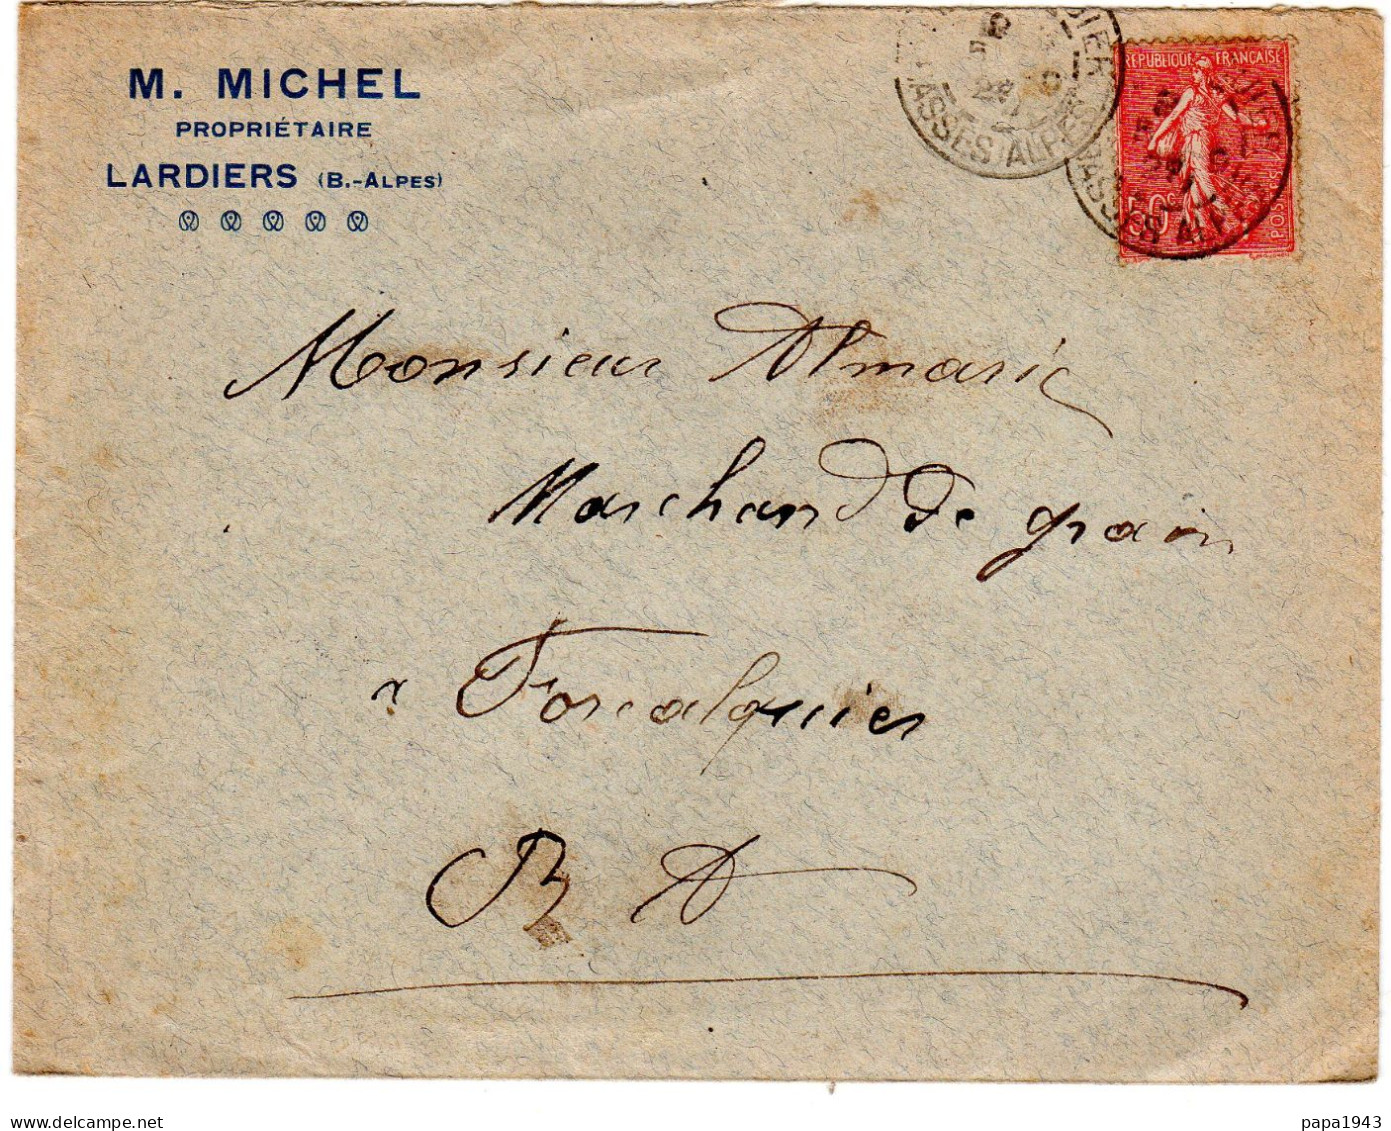 M. MICHEL
PROPRIÉTAIRE
LARDIERS (B.-ALPES)
RÉPUBLIQUE FRANÇAISE
50c
POSTES
BASSES ALPES
BASSES ALPES
Monsieur Almaric
Marchand de grain
à Forcalquier
B A
delcampe.net
papa1943